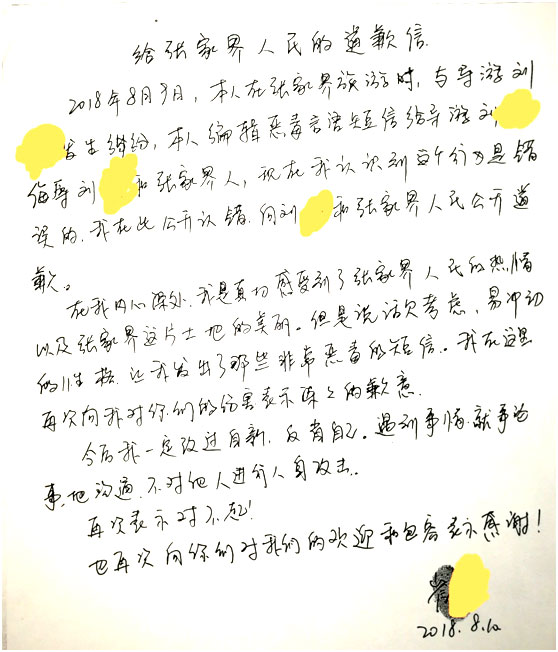 给张家界人民的道歉信
2018年8月9日，本人在张家界旅游时，与导游刘
发生纠纷，本人编辑恶毒言语短信给导游刘
侮辱刘 和张家界人，现在我认识到这个行为是错
误的.我在此公开认错.向刘 和张家界人民公开道
歉。
在我内心深处.我是真切感受到了张家界人民的热情
以及张家界这片土地的美丽。但是说话欠考虑，易冲动
的性格.让我发出了那些非常恶毒的短信。我在这里
再次向我对你们的伤害表示深深的歉意.
今后我一定改过自新，反省自己。遇到事情.就事论
事地沟通.不对他人进行人身攻击.
再次表示对不起!
也再次向你们对我们的欢迎和包容表示感谢!
2018.8.10